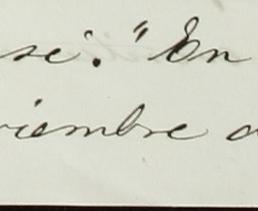 sé." En
viembre